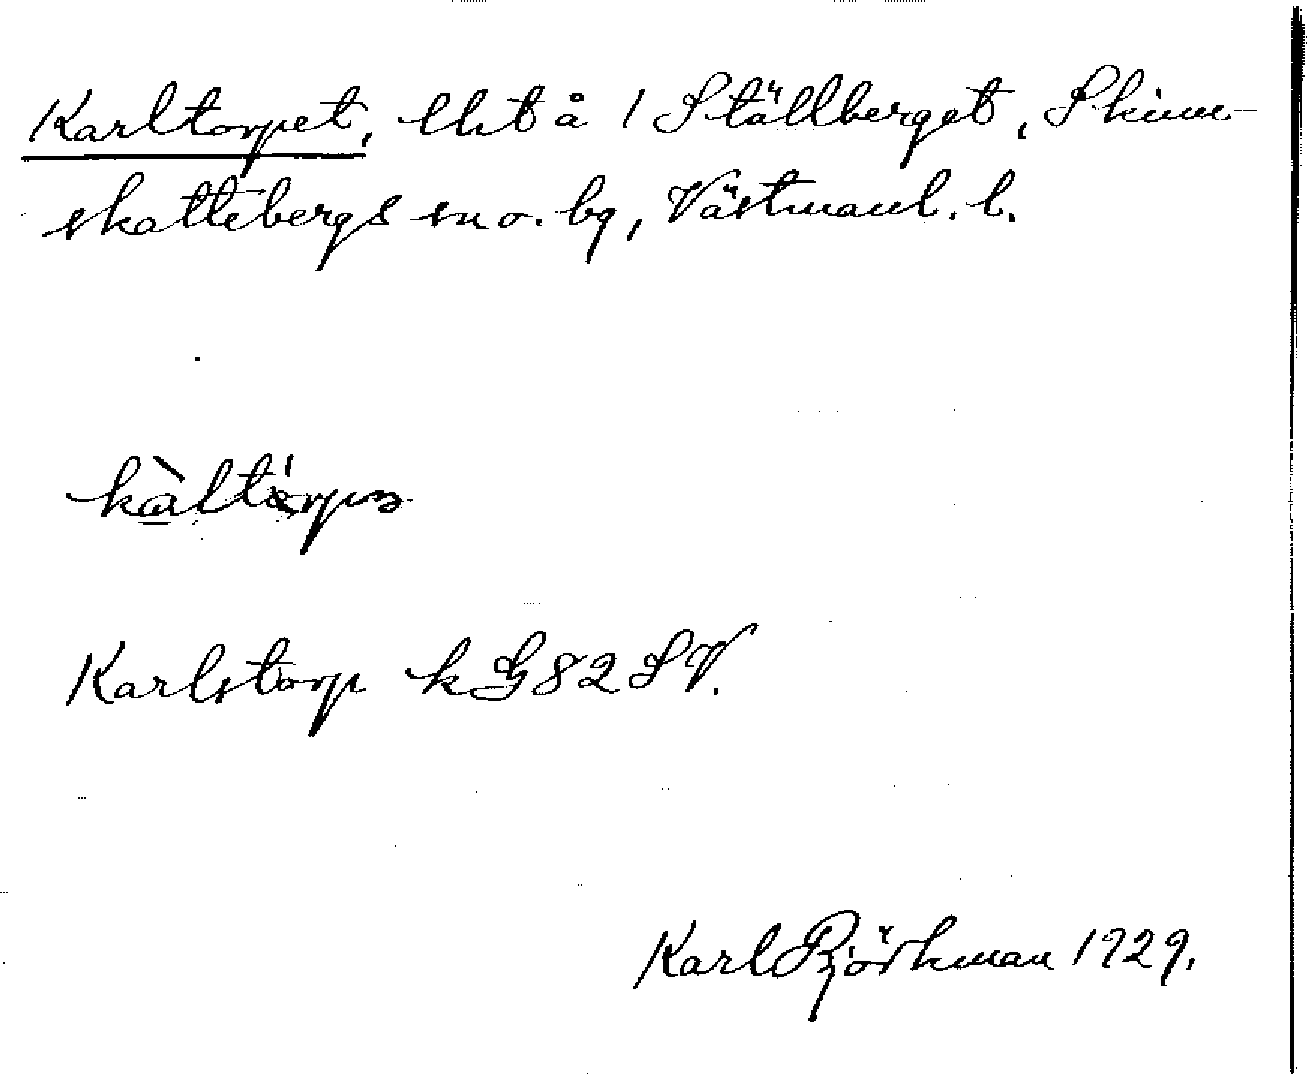 Karltorpet, lht å 1 Ställberget, Skinn-
skattebergs sn o. bg, Västmanl. l.
kàltórpə
Karlstorp k G82SV.
Karl Björkman 1929.